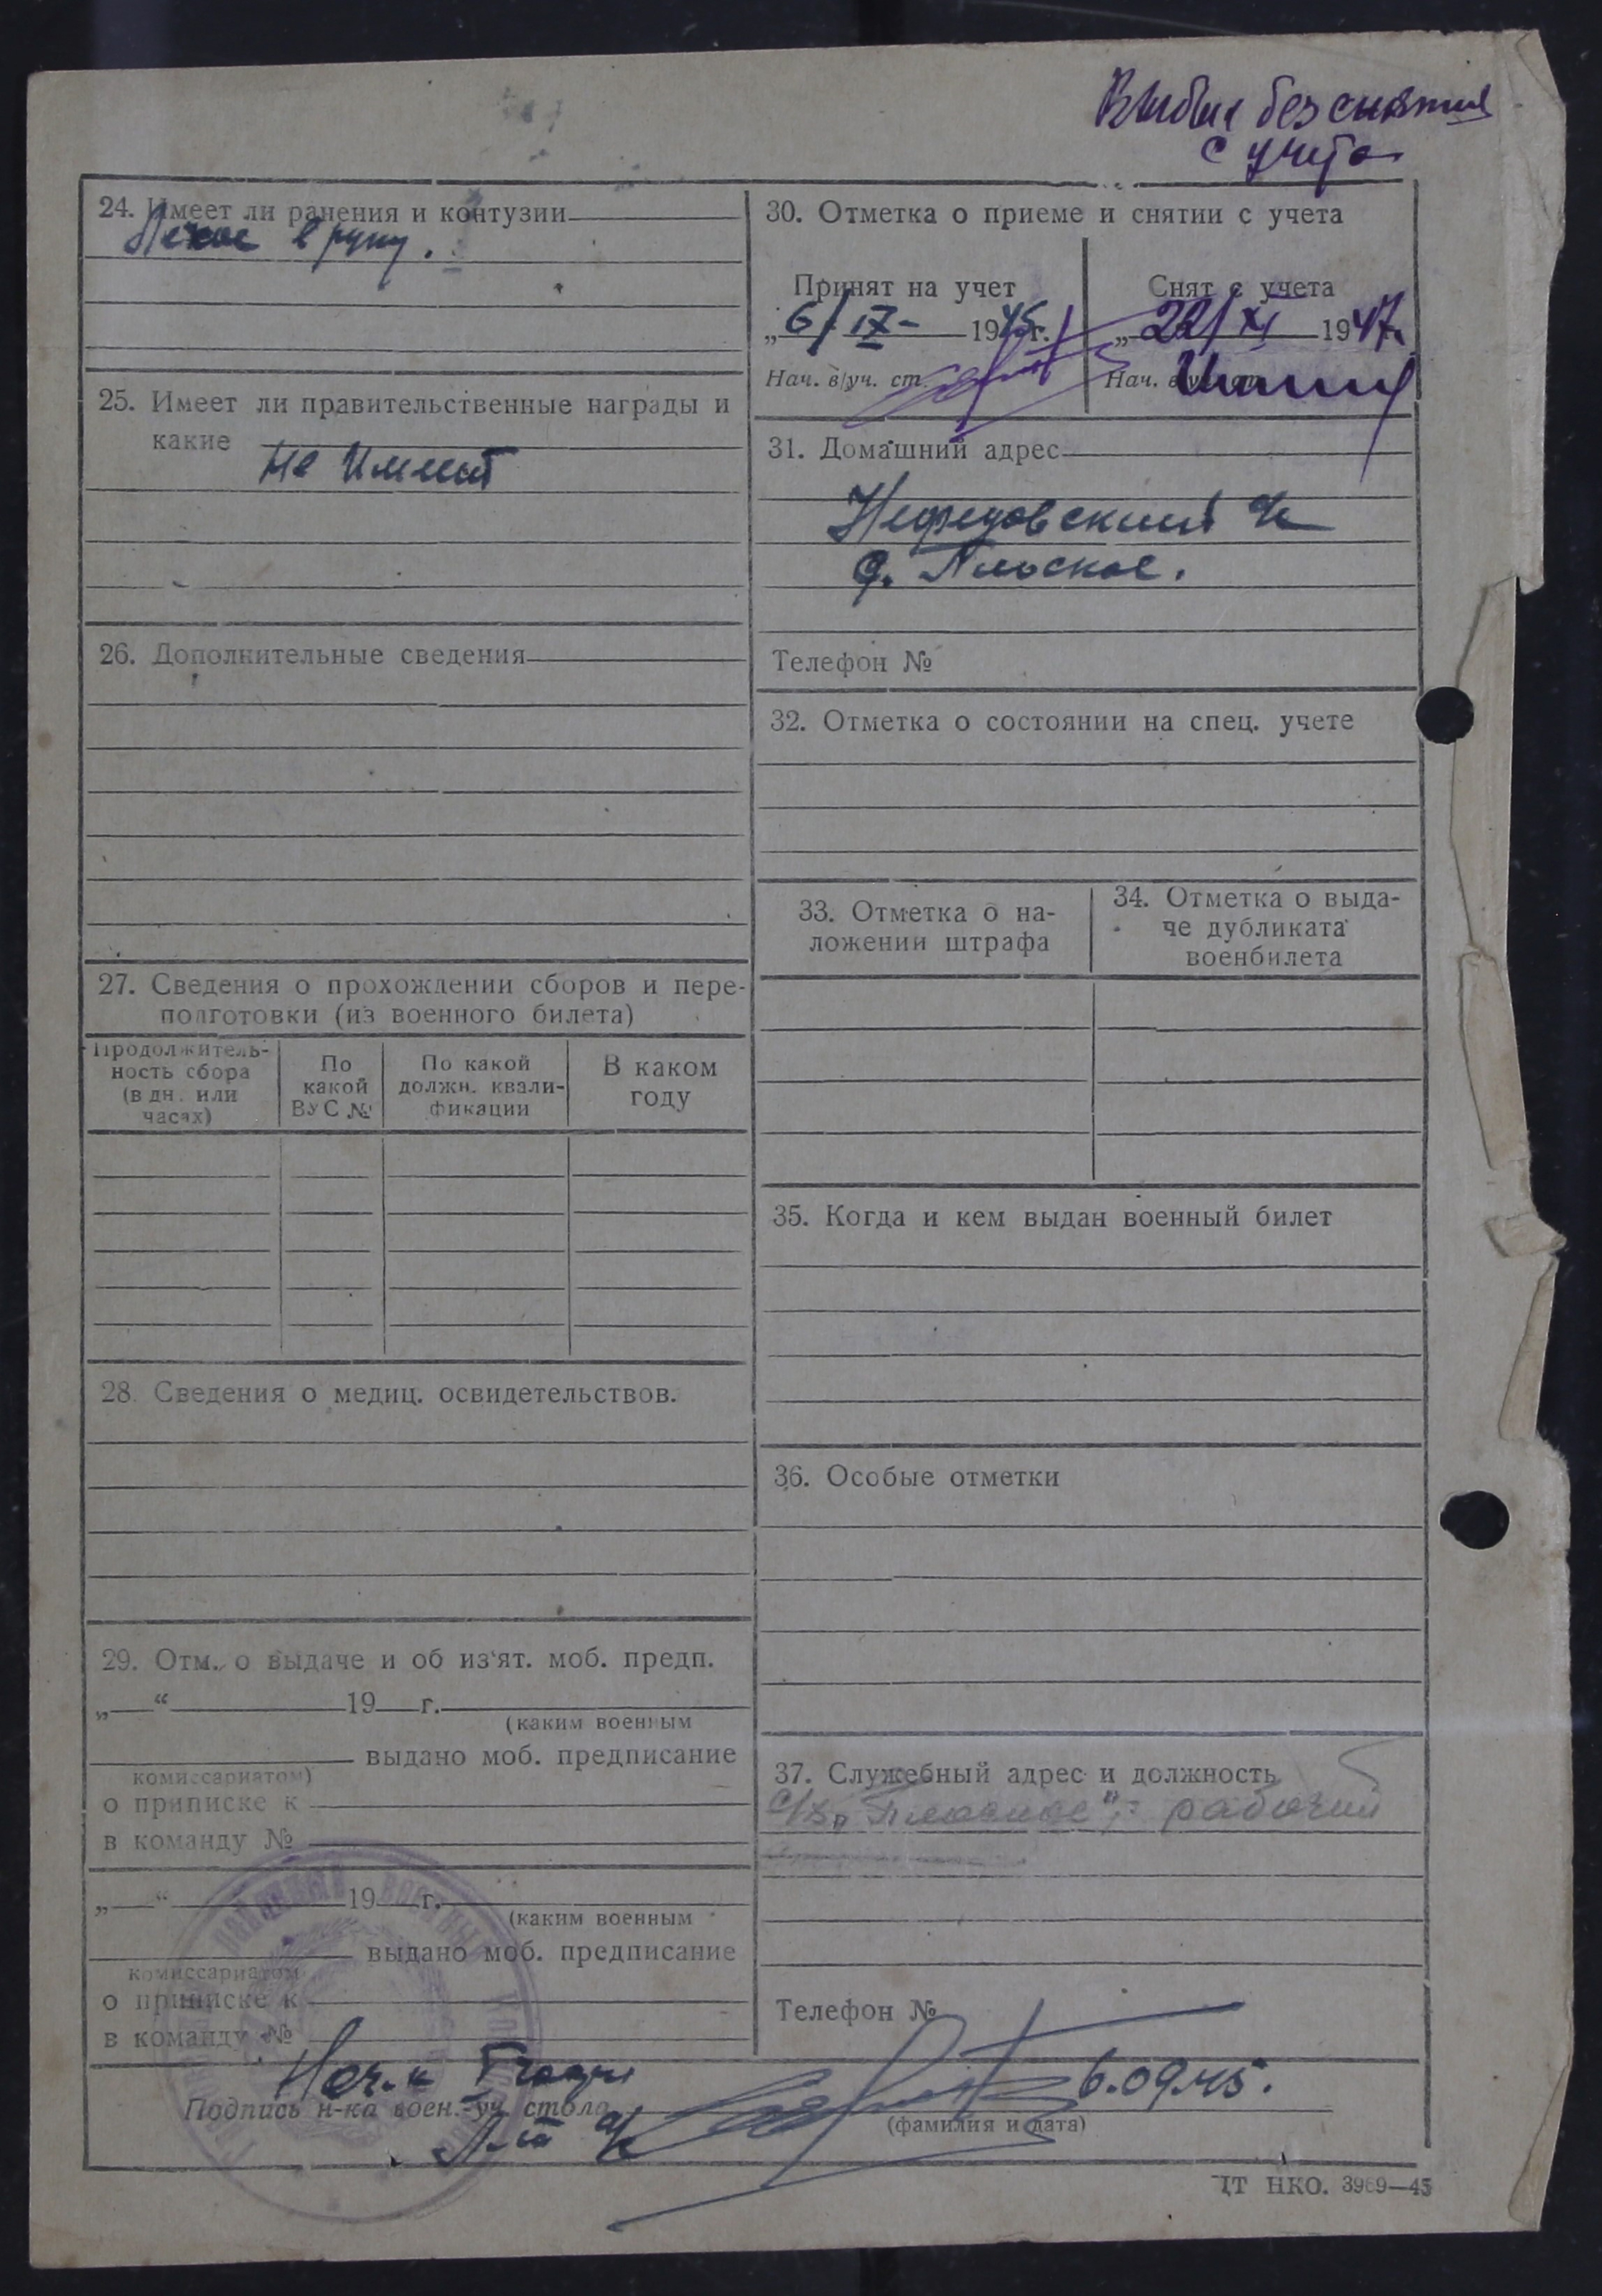 Выбыл без снятия
с учета
24. Имеет ли ранения и контузии
Легкое в руку.
25. Имеет ли правительственные награды и
какие
не имеет
26. Дополнительные сведения
27. Сведения о прохождении сборов и пере-
подготовки (из военного билета)
Продолжитель-
ность сбора
(в дн. или
часах)
По
какой
ВУС №
По какой
должн. квали-
фикации
В каком
году
28. Сведения о медиц. освидетельствов.
29. Отм. о выдаче и об из'ят. моб. предп.
„ “ 19 г.
(каким военным
выдано моб. предписание
комиссариатом)
о приписке к
в команду №
„ “ 19 г.
(каким военным
выдано моб. предписание
комиссариатом
о приписке к
в команду №
30. Отметка о приеме и снятии с учета
Принят на учет
„6/IX- 1945г.
Нач. в/уч. ст.
Снят с учета
„22/XI 1947г.
Нач. в/уч. ст.
31. Домашний адрес
с/с
д. Плоское.
Телефон №
32. Отметка о состоянии на спец. учете
33. Отметка о на-
ложении штрафа
34. Отметка о выда-
че дубликата
военбилета
35. Когда и кем выдан военный билет
36. Особые отметки
37. Служебный адрес и должность
с/х „Плоское", - рабочий
Телефон №
Нач-к
Подпись н-ка воен.-уч. стола
6.09.45.
(фамилия и дата)
Л-т а/с
IТ НКО. 3969—45